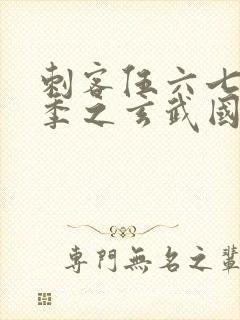 刺客伍六七
季之玄武國
專門無名之輩